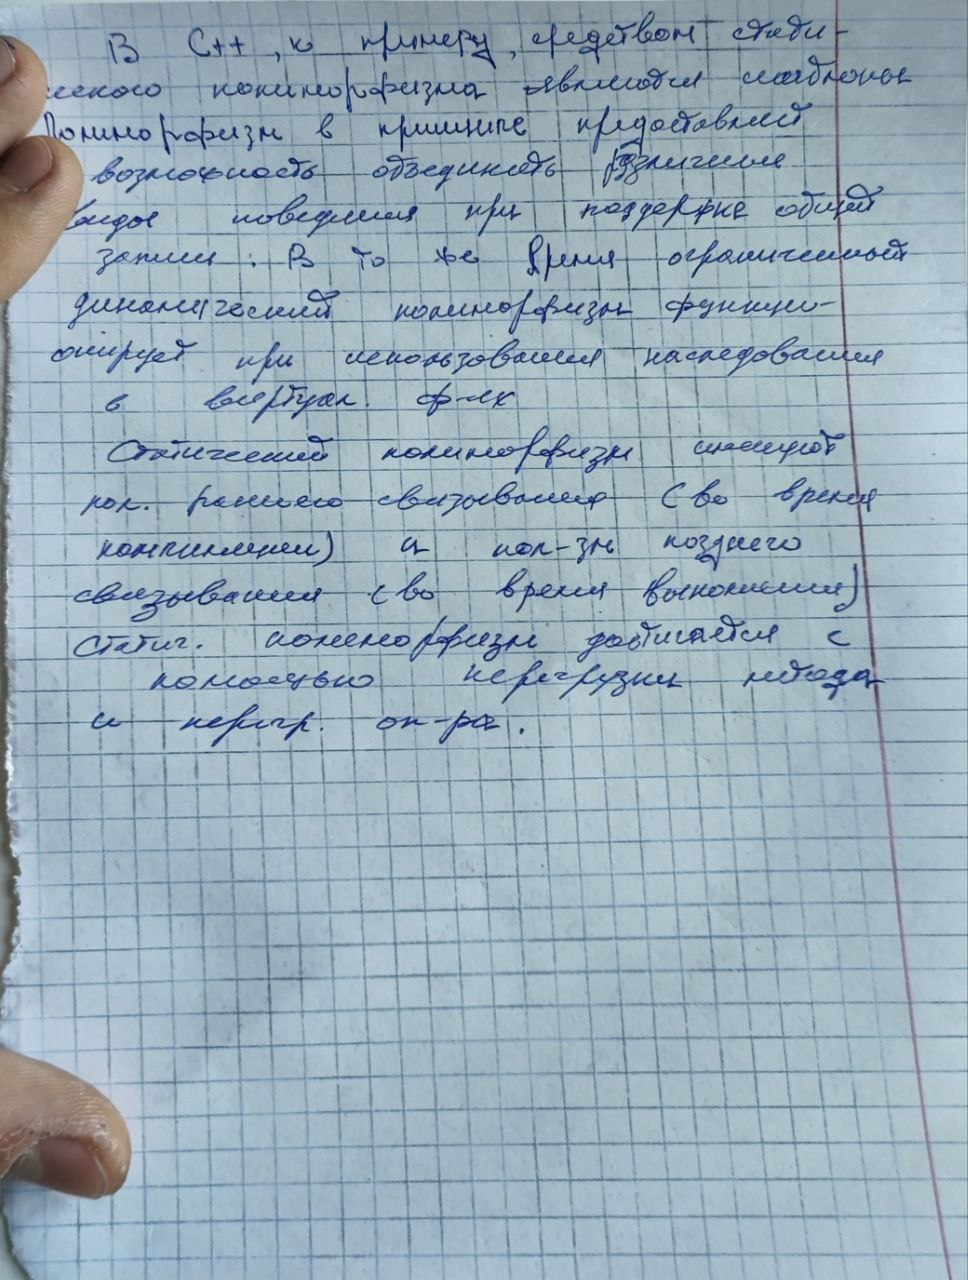 В С++, к примеру, средством стати-
ческого полиморфизма являются шаблоны
Полиморфизм в принципе предоставляет
возможность объединять различные
виды поведения при поддержке общей
записи. В то же время ограниченный
динамический полиморфизм функци-
онирует при использовании наследования
в виртуал. ф-ях
Статический полиморфизм
пол. раннего связывания (во время
компиляции) а пол-зм позднего
связывания (во время выполнения)
Статич. полиморфизм достигается с
помощью перегрузки метода
и перегр. оп-ра.